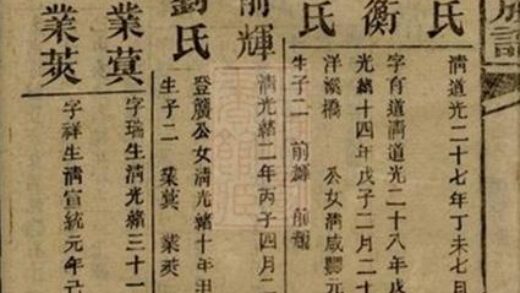 族譜
氏 清道光二十七年丁未七月
衡 字育道清道光二十八年戊
光緒十四年戊子二月二十
氏 洋溪橋 公女清咸豐元
生子二 前輝 前
前輝 清光緒二年丙子四月二
劉氏 登廣公女清光緒十年
生子二 業蓂 業莢
業蓂 字瑞生清光緒三十一
業莢 字祥生清宣統元年己